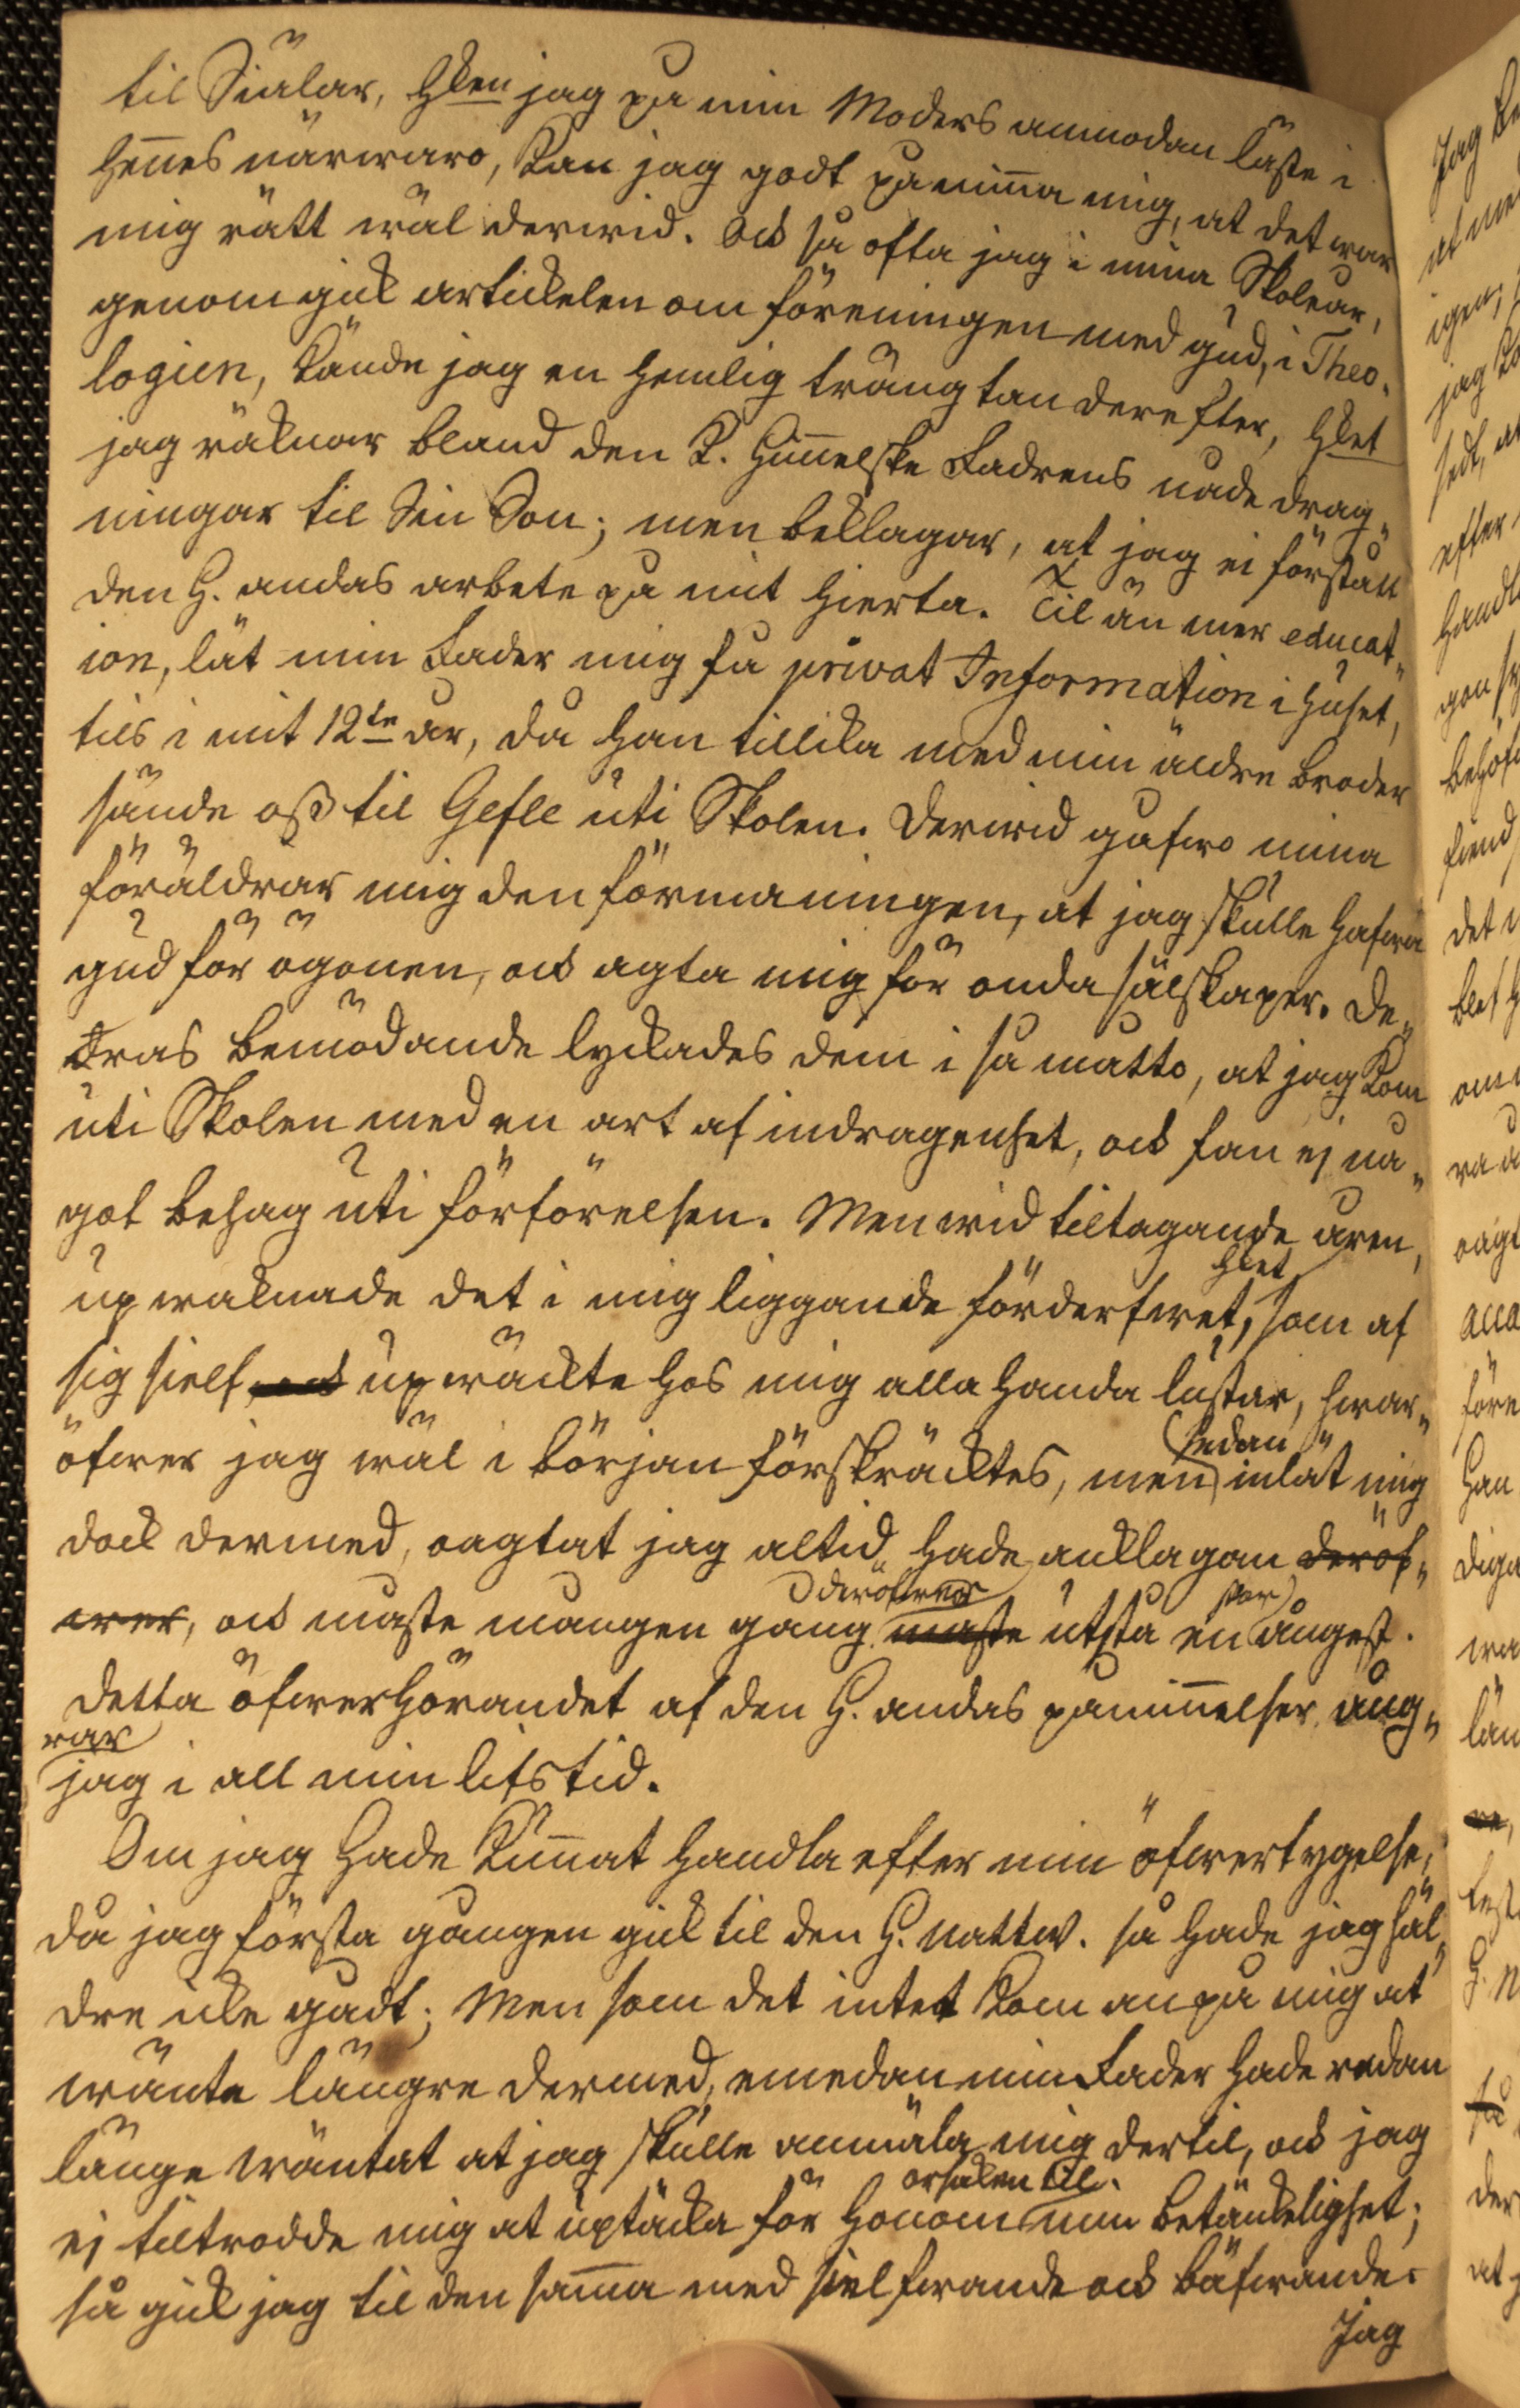 til Siälar, hken jag på min Moders anmodan läste i
hennes närwaro, kan jag godt påminna mig, at det war
mig rätt wäl derwid. Ock så ofta jag i mina Skoleår,
genomgick artickelen om föreningen med gud, i Theo-
logien, kände jag en hemlig trängtan derefter, hket
jag räknar bland den k. Himmelske Fadrens nåde drag„
ningar til Sin Son; men beklagar, at jag ei förstått
den H. andas arbete på mit hierta. Til än mer educat„
ion, lät min Fader mig få privat Information i huset,
tils i mit 12te år, då han tillika med min äldre broder
sände oß til Gefle uti Skolen. Derwid gåfwo mina
föräldrar mig den förmaningen, at jag skulle hafwa
gud för ögonen, ock agta mig för onda sälskaper. De„
tras bemödande lyckades dem i så matto, at jag kom
uti Skolen med en art af indragenhet, ock fan ej nå„
got behag uti förförelsen. Men wid tiltagande åren,
upwaknade det i mig liggande förderfwet, hket som af
sig sielf ock upwäckte hos mig alla handa lustar, hwar„
öfwer jag wäl i början förskräcktes, men sedan inlät mig
dock dermed, oagtat jag altid hade anklagan deröf„
wer, ock måste mången gång deröfwer måste utstå en stor ångest.
Detta öfwerhörandet af den H. andas påminnelser ång„
rar
jag i all min lifstid.
Om jag hade kunnat handla efter min öfwertygelse,
då jag första gången gick til den H. Nattw. så hade jag häl„
dre icke gådt; Men som det intet kom an på mig at
wänta längre dermed, emedan min Fader hade redan
länge wäntat at jag skulle anmäla mig dertil, ock jag
ej tiltrodde mig at uptäcka för honom orsaken til min betänkelighet;
så gick jag til den samma med sielfwande ock bäfwande.
Jag